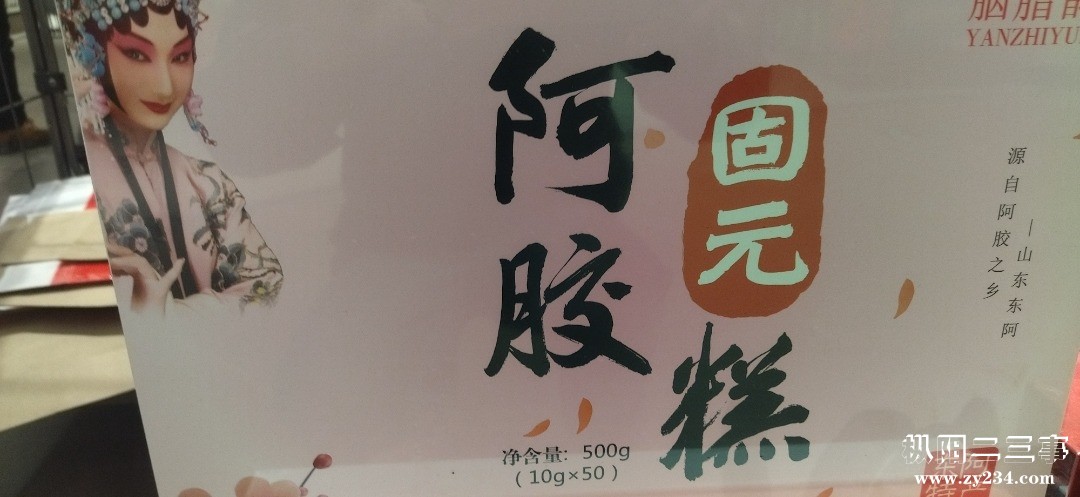 阿胶
固元
糕
净含量: 500g
(10g×50)
胭脂
YANZHIYU
源自阿胶之乡
—山东东阿
枞阳二三事
www.zy234.com